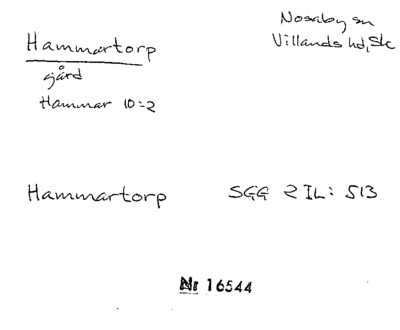 Hammartorp
gård
Hammar 10:2
Nosaby sn
Villands hd, Sk
Hammartorp SGG 2 IL: 513
Nr 16544